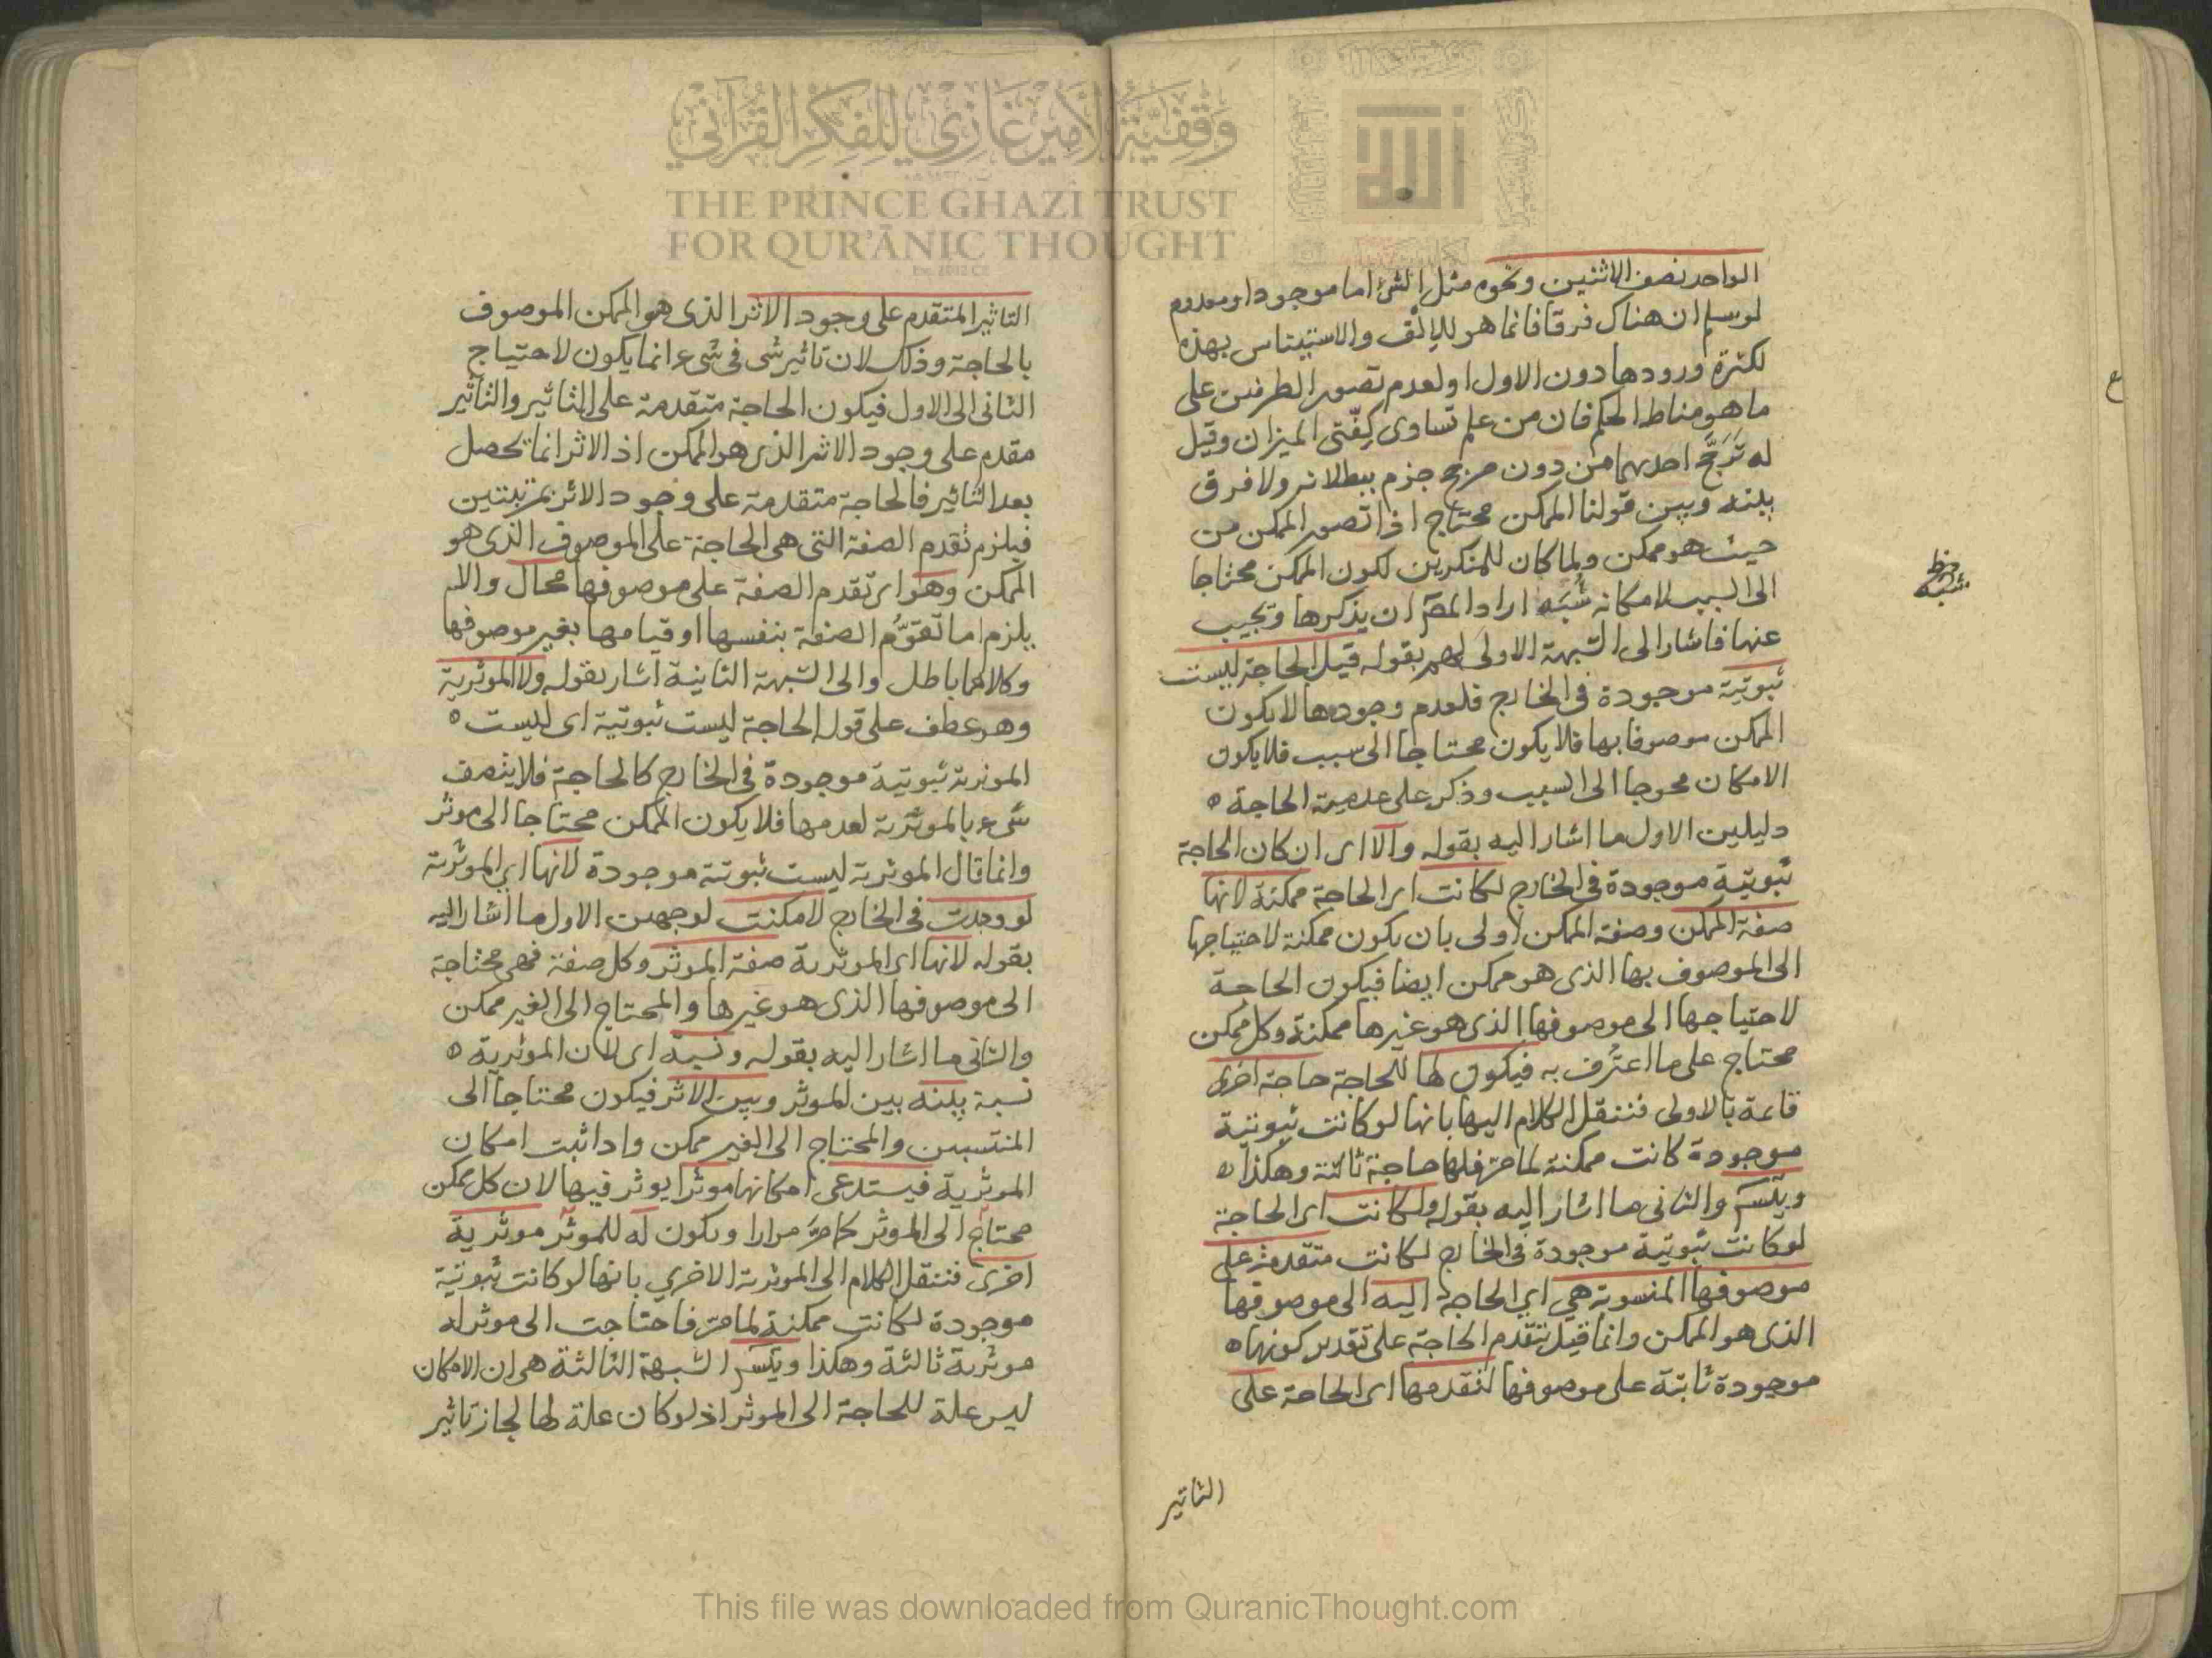 وقفية الأمير غازي للفكر القرآني
THE PRINCE GHAZI TRUST
FOR QUR'ĀNIC THOUGHT
الواحد نصف الاثنين ونحوه مثل الشئ اما موجود او معدوم
لو سلم ان هناك فرقا فانما هو للإلف والاستيناس بهذه
لكثرة ورودها دون الاول او لعدم تصور الطرفين على
ما هو مناط الحكم فان من علم تساوى كفّتى الميزان وقيل
له ترجّح احدىهما من دون مرجح جزم ببطلانه ولا فرق
بينه وبين قولنا الممكن محتاج اذا تصور الممكن من
حيث هو ممكن ولما كان للمنكرين لكون الممكن محتاجا
الى السبب لامكانه شُبَه اراد المصَ ان يذكرها ويجيب
عنها فاشار الى الشبهة الاولى لهم بقوله قيل الحاجة ليست
ثبوتية موجودة فى الخارج فلعدم وجودها لا يكون
الممكن موصوفا بها فلا يكون محتاجا الى سبب فلا يكون
الامكان محوجا الى السبب وذكر على عدمية الحاجة ه
دليلين الاول ما اشار اليه بقوله والا اى ان كان الحاجة
ثبوتية موجودة فى الخارج لكانت اى الحاجة ممكنة لانها
صفة الممكن وصفة الممكن اولى بان يكون ممكنة لاحتياجها
الى الموصوف بها الذى هو ممكن ايضا فيكون الحاجة
لاحتياجها الى موصوفها الذى هو غيرها ممكنة وكل ممكن
محتاج على ما اعتُرف به فيكون لها للحاجة حاجة اخرى
قائمة بالاولى فننقل الكلام اليها بانها لو كانت ثبوتية
موجودة كانت ممكنة لما مرّ فلها حاجة ثالثة وهكذا ه
ويتسَ والثانى ما اشار اليه بقوله ولكانت اى الحاجة
لو كانت ثبوتية موجودة فى الخارج لكانت متقدمة على
موصوفها المنسوبة هي اي الحاجة اليه الى موصوفها
الذى هو الممكن وانما قيل تتقدم الحاجة على تقدير كونها ه
موجودة ثابتة على موصوفها لتقدمها اى الحاجة على
التاثير
شبه
التاثير المتقدم على وجود الاثر الذى هو الممكن الموصوف
بالحاجة وذلك لان تاثير شى فى شىء انما يكون لاحتياج
الثانى الى الاول فيكون الحاجة متقدمة على التاثير والتاثير
مقدم على وجود الاثر الذى هو الممكن اذ الاثر انما تحصل
بعد التاثير فالحاجة متقدمة على وجود الاثر بمرتبتين
فيلزم تقدم الصفة التى هى الحاجة على الموصوف الذى هو
الممكن وهو اى تقدم الصفة على موصوفها محال والا
يلزم اما تقوُّم الصفة بنفسها او قيامها بغير موصوفها
وكلاهما باطل والى الشبهة الثانية اشار بقوله ولا الموثرية
وهو عطف على قوله الحاجة ليست ثبوتية اى ليست ه
الموثرية ثبوتية موجودة فى الخارج كالحاجة فلا يتصف
شىء بالموثرية لعدمها فلا يكون الممكن محتاجا الى موثر
وانما قال الموثرية ليست ثبوتية موجودة لانها اى الموثرية
لو وجدت فى الخارج لامكنت لوجهين الاول ما اشار اليه
بقوله لانها اى الموثرية صفة الموثر وكل صفة فهى محتاجة
الى موصوفها الذى هو غيرها والمحتاج الى الغير ممكن
والثانى ما اشار اليه بقوله ونسبة اى لان الموثرية ه
نسبة بينه بين الموثر وبين الاثر فيكون محتاجا الى
المنتسبين والمحتاج الى الغير ممكن واذا ثبت امكان
الموثرية فيستدعى امكانها موثرا يوثر فيها لان كل ممكن
محتاج الى الموثر كما مرّ مرارا ويكون له للموثر موثرية
اخرى فننقل الكلام الى الموثرية الاخرى بانها لو كانت ثبوتية
موجودة لكانت ممكنة لما مرّ فاحتاجت الى موثر له
موثرية ثالثة وهكذا ويتسَ الشبهة الثالثة هى ان الامكان
ليس علة للحاجة الى الموثر اذ لو كان علة لها لجاز تاثير
This file was downloaded from QuranicThought.com